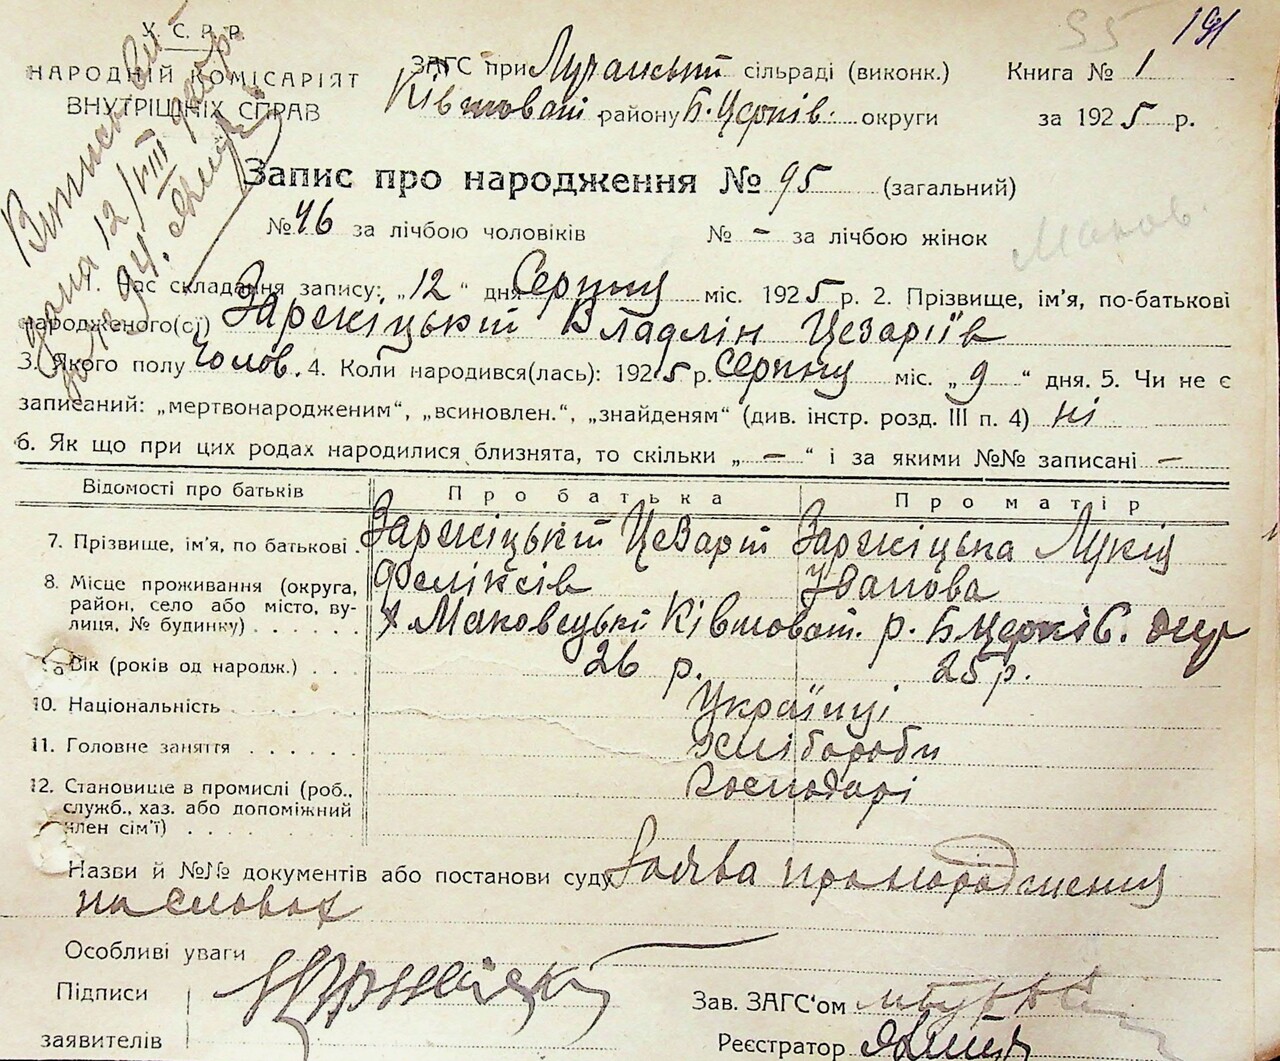 55 191
У. С. Р. Р.
НАРОДНІЙ КОМІСАРІЯТ
ВНУТРІШНІХ СПРАВ
ЗАГС при Лучанській сільраді (виконк.)
Книга № 1
Ківшовані району Б. Церків. округи
за 1925 р.
Запис про народження № 95 (загальний)
№ 46 за лічбою чоловіків № – за лічбою жінок
Маков.
1. Час складання запису: „12“ дня Серпня міс. 1925 р. 2. Прізвище, ім’я, по-батькові
народженого(ої) Заржіцькій Владлін Цезаріїв
3. Якого полу Чолов. 4. Коли народився(лась): 1925 р. Серпня міс. „9“ дня. 5. Чи не є
записаний: „мертвонародженим“, „всиновлен.“, „знайденям“ (див. інстр. розд. III п. 4) ні
6. Як що при цих родах народилися близнята, то скільки „–“ і за якими №№ записані –
Відомості про батьків Про батька Про матір
7. Прізвище, ім’я, по батькові . Заржіцькій Цезарій Заржіцька Лукія
Феліксів Іванова
8. Місце проживання (округа,
район, село або місто, ву-
лиця, № будинку) . . . . . . х. Маковецькі Ківшоват. р. Б Церків. окр
9. Вік (років од народж.) . . . 26 р. 25 р.
10. Національність . . . . . . Українці
11. Головне заняття . . . . . . Хлібороби
12. Становище в промислі (роб.,
служб., хаз. або допоміжний
член сім’ї) . . . . . . . Господарі
Назви й №№ документів або постанови суду Заява про народження
на словах
Особливі уваги
Підписи
заявителів
Зав. ЗАГС‘ом
Реєстратор
Випись
дана 12/VIII